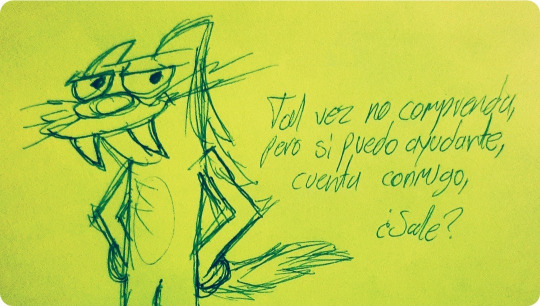 Tal vez no comprenda,
pero si puedo ayudarte,
cuenta conmigo,
¿Sale?